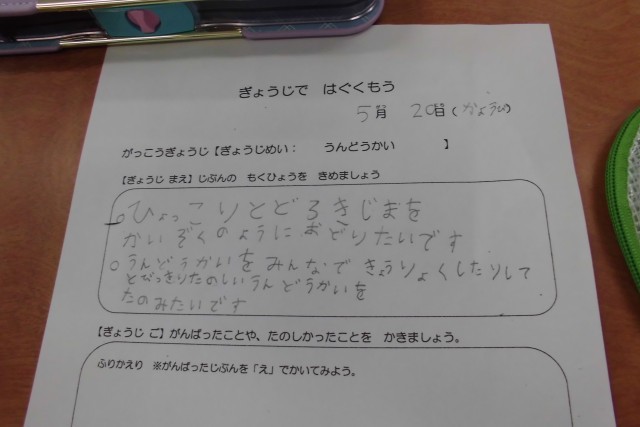 ぎょうじで　はぐくもう
5月　20日(かようび)
がっこうぎょうじ【ぎょうじめい：　うんどうかい　】
【ぎょうじ まえ】じぶんの　もくひょうを　きめましょう
○ひょっこりとどろきじまを
かいぞくのようにおどりたいです
○うんどうかいをみんなで きょうりょくしたりして
とびっきりたのしいうんどうかいを
たのみたいです
【ぎょうじ ご】がんばったことや、たのしかったことを　かきましょう。
ふりかえり　※がんばったじぶんを「え」でかいてみよう。